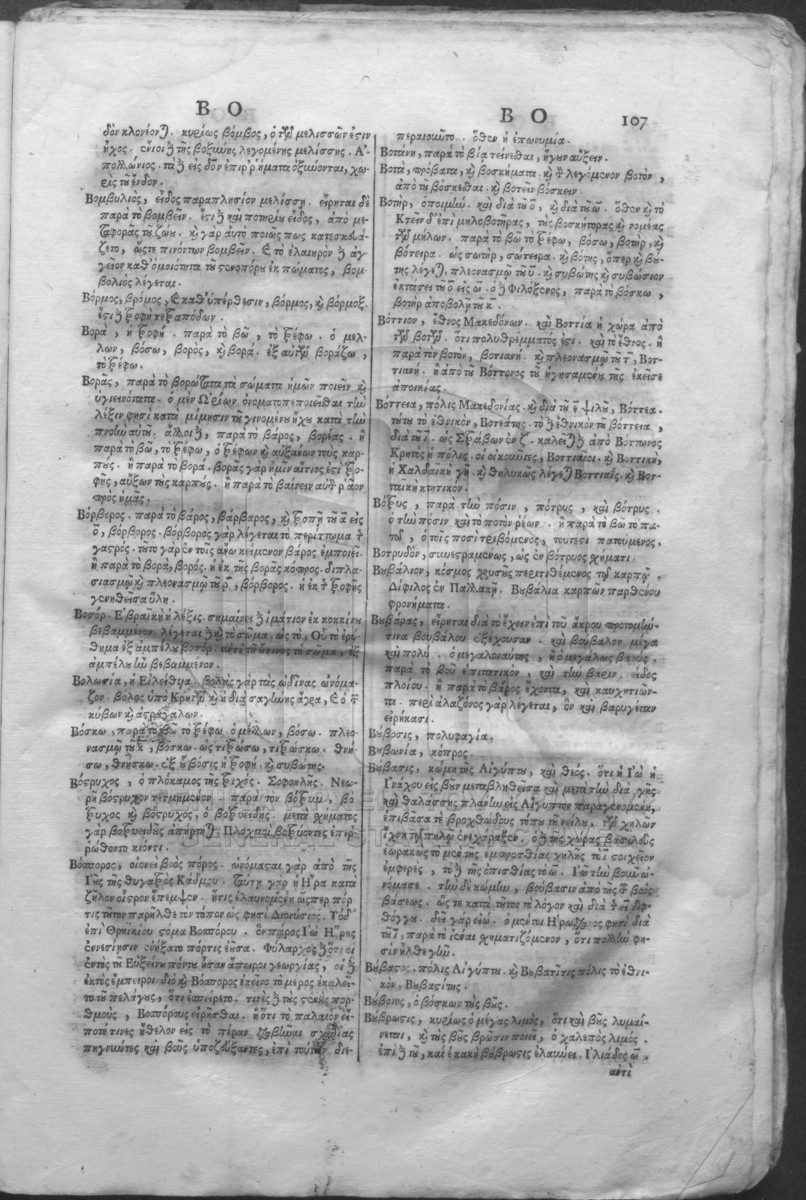 Β Ο
δὸν κλονέον). κυρίως βόμβος, ὁ τῶν μελισσῶν ἐστὶν
ἦχος. λεγομένης μελίσσης. Α᾿-
πολλώνιος. τὰ εἰς δὸν ἐπιῤῥήματα ὀξύνονται, χω-
ρὶς τοῦ ἔνδον.
Βομβυλιὸς, εἶδος παραπλήσιον μελίσσῃ. εἴρηται δὲ
παρὰ τὸ βομβεῖν. ἔστι καὶ ποτηρίου εἶδος, ἀπὸ με-
ταφορᾶς τοῦ ζώου. καὶ γὰρ αὐτὸ ποιῶς πως κατεσκευά-
ζετο, ὥστε πινόντων βομβεῖν. καὶ τὸ ἐλαιηρὸν ἀγ-
γεῖον καθ᾿ ὁμοιότητα τοῦ ἐκπώματος, βομ-
βόλιος λέγεται.
Βόρμος, βρόμος, καὶ καθ᾿ ὑπέρθεσιν, βόρμος, καὶ βόρμοξ.
ἔστι τροφὴ τετραπόδων.
Βορὰ, ἡ τροφή. παρὰ τὸ βῶ, τὸ τρέφω. ὁ μέλ-
λων, βόσω, βορος, καὶ βορά. ἐξ αὐτοῦ βοράζω,
τὸ τρέφω.
Βορᾶς, παρὰ τὰ σώματα ἡμῶν ποιεῖν καὶ
ὑγιεινότατα. ὁ μὲν Ωρίων ὀνοματοπεποιεῖσθαι τὴν
λέξιν φησὶ κατὰ μίμησιν τοῦ γινομένου ἤχου κατὰ τὴν
πνοὴν αὐτοῦ. ἄλλοι, παρὰ τὸ βάρος, βορέας. ἢ
παρὰ τὸ βῶ, τὸ τρέφω, ὁ τρέφων καὶ αὐξάνων τοὺς καρ-
πούς. ἢ παρὰ τὸ βορά. βορᾶς γὰρ ἡμῖν αἴτιός ἐστι τρο-
φῆς, αὔξων τοὺς καρπούς. ἢ παρὰ τὸ βαίνειν
πρὸς ἡμᾶς.
Βόρβορος. παρὰ τὸ βάρος, βάρβαρος, καὶ τροπῇ τοῦ α εἰς
ο, βόρβορος. βόρβορος γὰρ λέγεται τὸ περίττωμα τῆς
γαστρός. τοῦτο γὰρ ἐν τοῖς ἄνω κείμενον βάρος ἐμποιεῖ.
ἢ παρὰ τὸ βορὰ, βορός. ἢ ἐκ τῆς βορᾶς κόπρος. διπλα-
σιασμῷ καὶ πλεονασμῷ τοῦ ρ, βόρβορος. ἡ ἐκ τροφῆς
γενηθεῖσα ὕλη.
Βοσόρ. Ε῾βραϊκὴ ἡ λέξις. σημαίνει ἱμάτιον ἐκ κοκκίνου
βεβαμμένον. λέγεται καὶ τὸ σῶμα, ὡς τὸ, Οὗ τὸ ἐρύ-
θημα ἐξ ἀμπέλου βοσόρ. τὸ σῶμα, ἐξ
ἀμπέλου ἦν βεβαμμένον.
Βολωσία, ἡ Εἰλείθυα. βολὰς γὰρ τὰς ὠδῖνας ὠνόμα-
ζον. βόλος ὑπὸ Κρητῶν καὶ ἡ διὰ σαγήνης ἄγρα, καὶ ὁ τῶν
κύβων καὶ ἀστραγάλων.
Βόσκω, παρὰ τὸ βῶ τὸ τρέφω. ὁ μέλλων, βόσω. πλεο-
νασμῷ τοῦ κ, βόσκω. ὡς τιτρώσω, τιτρώσκω. θνή-
σω, θνήσκω. ἐξ οὗ βόσις ἡ τροφὴ, καὶ συβώτης.
Βόστρυχος, ὁ πλόκαμος τῆς τριχός. Σοφοκλῆς. Νεω-
ρῆ βόστρυχον τετμημένον. παρὰ τὸν βότρυν, βό
τρυχος καὶ βόστρυχος, ὁ βοτρυειδής. μετὰ σχήματος
γὰρ βοτρυειδοῦς ἀπῄρτη). Πλοχμοὶ βοτρυόεντες ἐπερ-
ρώθοντο κιόντι.
Βόσπορος, οἱονεὶ βοὸς πόρος. ὠνόμασται γὰρ ἀπὸ τῆς
Ι᾿οῦς τῆς θυγατρὸς Κάδμου. ταύτῃ γὰρ ἡ Η῞ρα κατὰ
ζῆλον οἶστρον ἔπεμψεν. ἥτις ἐλαυνομένη ὥσπερ πόρ
τις τοῦτον παρῆλθε τὸν τόπον ὥς φησι Διονύσιος. Τόδ᾿
ἐπὶ Θρηικίου στόμα Βοσπόρου. ὃν πάρος Ι᾿ὼ Η῞ρης
ἐννεσίῃσιν ἐνήξατο πόρτις ἐοῦσα. Φύλαρχος οἱ
ἐντὸς τοῦ Εὐξείνου πόντου ἦσαν ἄπειροι γεωργίας, οἱ δ᾿
ἐκτὸς ἔμπειροι. διὸ καὶ Βόσπορος ἐκεῖνο τὸ μέρος ἐκαλεῖ-
το τοῦ πελάγους, ὅτι ἐσπείρετο. τινὲς πορ-
θμοὺς, Βοσπόρους εἰρῆσθαι. ἢ ὅτι τὸ παλαιὸν εἴ-
ποτέ τινες ἤθελον εἰς τὸ πέραν διαβῆναι σχεδίας
πηγνύντες καὶ βοῦς ὑποζευγνύντες, ἐπὶ τούτων διε-
Β Ο 107
περαιοῦντο. ὅθεν ἡ ἐπωνυμία.
Βοτάνη, παρὰ τὸ βίᾳ τείνεσθαι, ἤγουν αὔξειν.
Βοτὰ, πρόβατα, καὶ βοσκήματα. καὶ τὸ λεγόμενον βοτὸν,
ἀπὸ τοῦ βόσκεσθαι. καὶ βοτεῖν βόσκειν.
Βοτὴρ, ὁ ποιμήν. καὶ διὰ τοῦ ο, καὶ διὰ τοῦ ω. ὅθεν καὶ τὸ
Κτεῖνον δ᾿ ἐπὶ μηλοβοτῆρας, τοὺς βοσκήτορας καὶ νομέας
τῶν μήλων. παρὰ τὸ βῶ τὸ τρέφω, βόσω, βοτὴρ, καὶ
βότειρα. ὡς σωτὴρ, σώτειρα. καὶ βότης, ὅπερ καὶ βού-
της λέγε). πλεονασμῷ τοῦ υ. καὶ συβώτης καὶ συβόσιον
ἐκτάσει τοῦ ο εἰς ω. ὁ Φιλόξενος, παρὰ τὸ βόσκω,
βοτὴρ ἀποβολῇ τοῦ κ.
Βόττιον, ἔθνος Μακεδόνων. καὶ Βοττία ἡ χώρα ἀπὸ
τῶν βοτῶν. ὅτι πολυθρέμματός ἐστι. καὶ τὸ ἔθνος. ἢ
παρὰ τὸν βοτὸν, βοτιανή. καὶ πλεονασμῷ τοῦ τ, Βοτ-
τιανή. ἢ ἀπὸ τοῦ Βόττωνος τοῦ ἡγησαμένου τῆς ἐκεῖσε
ἀποικίας.
Βόττεια, πόλις Μακεδονίας. καὶ διὰ τοῦ ε ψιλοῦ, Βόττεα.
τούτου τὸ ἐθνικὸν, Βοτεάτης. τὸ ἐθνικὸν τοῦ βόττεια,
διὰ τοῦ ι. ὡς Στράβων ἐν ζ. καλεῖ) ἀπὸ Βόττωνος
Κρητὸς ἡ πόλις. οἱ οἰκοῦντες, Βοττιαῖοι. καὶ Βοττικὴ,
ἡ Χαλδαϊκὴ γῆ. καὶ θηλυκῶς λέγε) Βοττιαίς. καὶ Βοτ-
τιαϊκὴ κτητικόν.
Βότρυς, παρὰ τὴν πόσιν, πότρυς, καὶ βότρυς.
ὁ τὴν πόσιν καὶ τὸ ποτὸν ῥέων. ἢ παρὰ τὸ βῶ τὸ πα-
τῶ, ὁ τοῖς ποσὶ τριβόμενος, τουτέστι πατούμενος.
Βοτρυδὸν, συνεστραμμένως, ὡς ἐν βότρυος σχήματι.
Βουβάλιον, κόσμος χρυσοῦς περιτιθέμενος τῷ καρπῷ.
Δίφιλος ἐν Παλλακῇ. Βουβάλια καρπῶν παρθένου
φρονήματα.
Βουβάρας, εἴρηται διὰ τὸ ἔχειν ἐπὶ τοῦ ἄκρου προτομήν
τινα βουβάλου ἐξέχουσαν. καὶ βούβαλον μέγα
καὶ πολύ. ὁ μεγαλοναύτης, ἢ ὁ μεγάλως βαρύς.
παρὰ τὸ βοῦ ἐπιτατικὸν, καὶ τὴν βᾶριν. εἶδος
πλοίου. ἢ παρὰ τὸ βάρος ἔχοντα, καὶ καυχητιῶν-
τα. περὶ ἀλαζόνος γὰρ λέγεται, ὃν καὶ βαρυγέταν
εἰρήκασι.
Βούβοσις, πολυφαγία.
Βουβωνία, κόπρος.
Βούβασις, κώμη τῆς Αἰγύπτου, καὶ θεός. ὅτι ἡ Ι᾿ὼ ἡ
Ι᾿νάχου εἰς βοῦν μεταβληθεῖσα καὶ μετὰ τὴν διὰ γῆς
καὶ θαλάσσης πλάνην εἰς Αἴγυπτον παραγενομένη,
ἐπιβᾶσα τοῦ βροχθώδους τόπου τοῦ νείλου, τῶν χηλῶν
ἴχνη τῷ πηλῷ ἐνεχάραξεν. ὁ τῆς χώρας βασιλεὺς
ἑωρακὼς τὸ μὲν τῆς ἐμπροσθίας χηλῆς τῷ στοιχείον
ἐμφερὲς, τὸ τῆς ὀπισθίας τὸ ω. Ι᾿ὼ τὴν βοῦν ὠ-
νόμασε. τὴν δὲ κώμην, βούβασιν ἀπὸ τῆς τοῦ βοὸς
βάσεως. ὥστε κατὰ τοῦτον τὸν λόγον καὶ διὰ τῆς ει διφ-
θόγγου. ὁ μέντοι Η῾ρωδιανός φησι διὰ
τοῦ ι, παρὰ τὸ ἰέναι χηματιζόμενον, ὅτι πολλὴν φη-
σιν ἦλθε γῆν.
Βούβαστος. πόλις Αἰγύπτου. καὶ Βουβαστῖτις πόλις τὸ ἐθνι-
κὸν, Βουβαστίτης.
Βούβοτος, ὁ βόσκων τοὺς βοῦς.
Βούβρωστις, κυρίως ὁ μέγας λιμὸς, ὅτι καὶ βοῦς λυμαί-
νεται, καὶ τοὺς βοῦς βρῶσιν ποιεῖ, ὁ χαλεπὸς λιμός.
ἐπὶ τοῦ, καί ἑ κακὴ βούβρωστις ἐλαύνει. Ι᾿λιάδος ω.
ἀντὶ